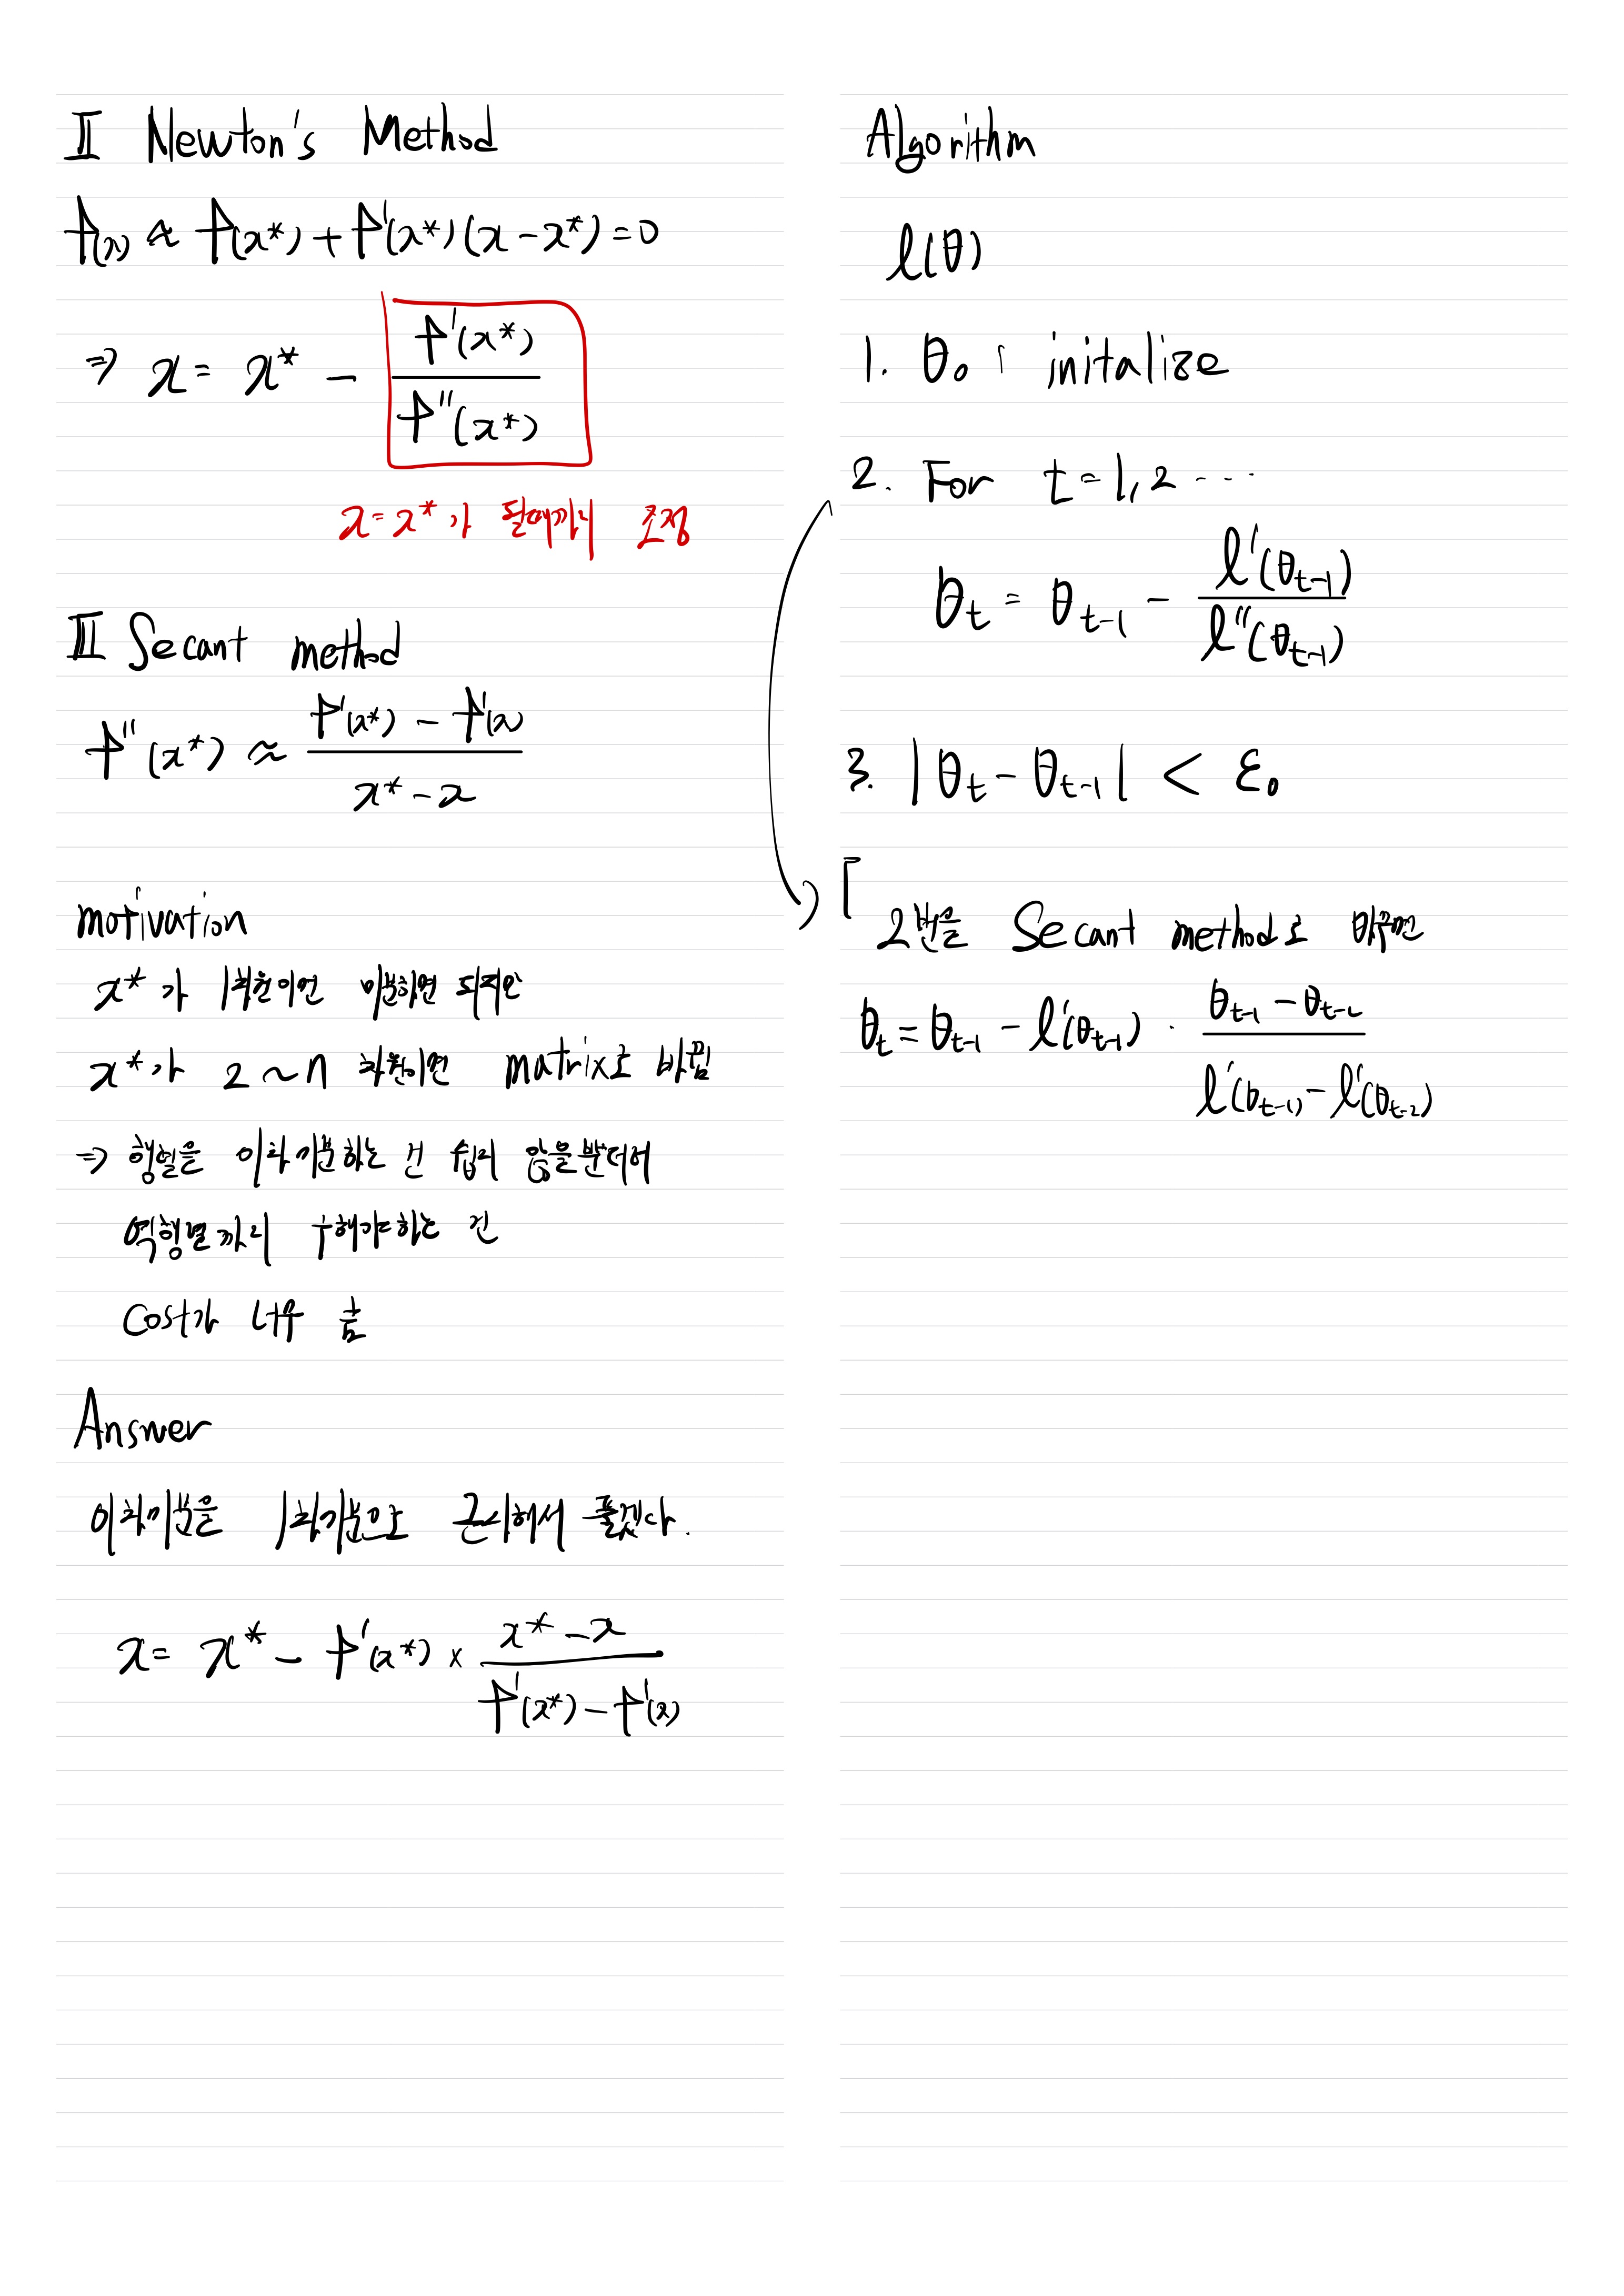 Ⅱ Newton's Method
f(x) ≈ f(x*) + f'(x*)(x - x*) = 0
⇒ x = x* - f'(x*) / f''(x*)
x = x*가 될때까지 조정
Ⅲ Secant method
f''(x*) ≈ (f'(x*) - f'(x)) / (x* - x)
motivation
x*가 1차원이면 미분하면 되지만
x*가 2 ~ n 차원이면 matrix로 바뀜
⇒ 행렬을 이차미분하는 건 쉽지 않을뿐더러
역행렬까지 구해야하는 건
Cost가 너무 큼
Answer
이차미분을 1차미분으로 근사해서 풀겠다.
x = x* - f'(x*) × (x* - x) / (f'(x*) - f'(x))
Algorithm
l(θ)
1. θ₀ : initalize
2. For t = 1, 2 ....
θ_t = θ_{t-1} - l'(θ_{t-1}) / l''(θ_{t-1})
3. |θ_t - θ_{t-1}| < ε₀
2번을 Secant method로 바꾸면
θ_t = θ_{t-1} - l'(θ_{t-1}) · (θ_{t-1} - θ_{t-2}) / (l'(θ_{t-1}) - l'(θ_{t-2}))